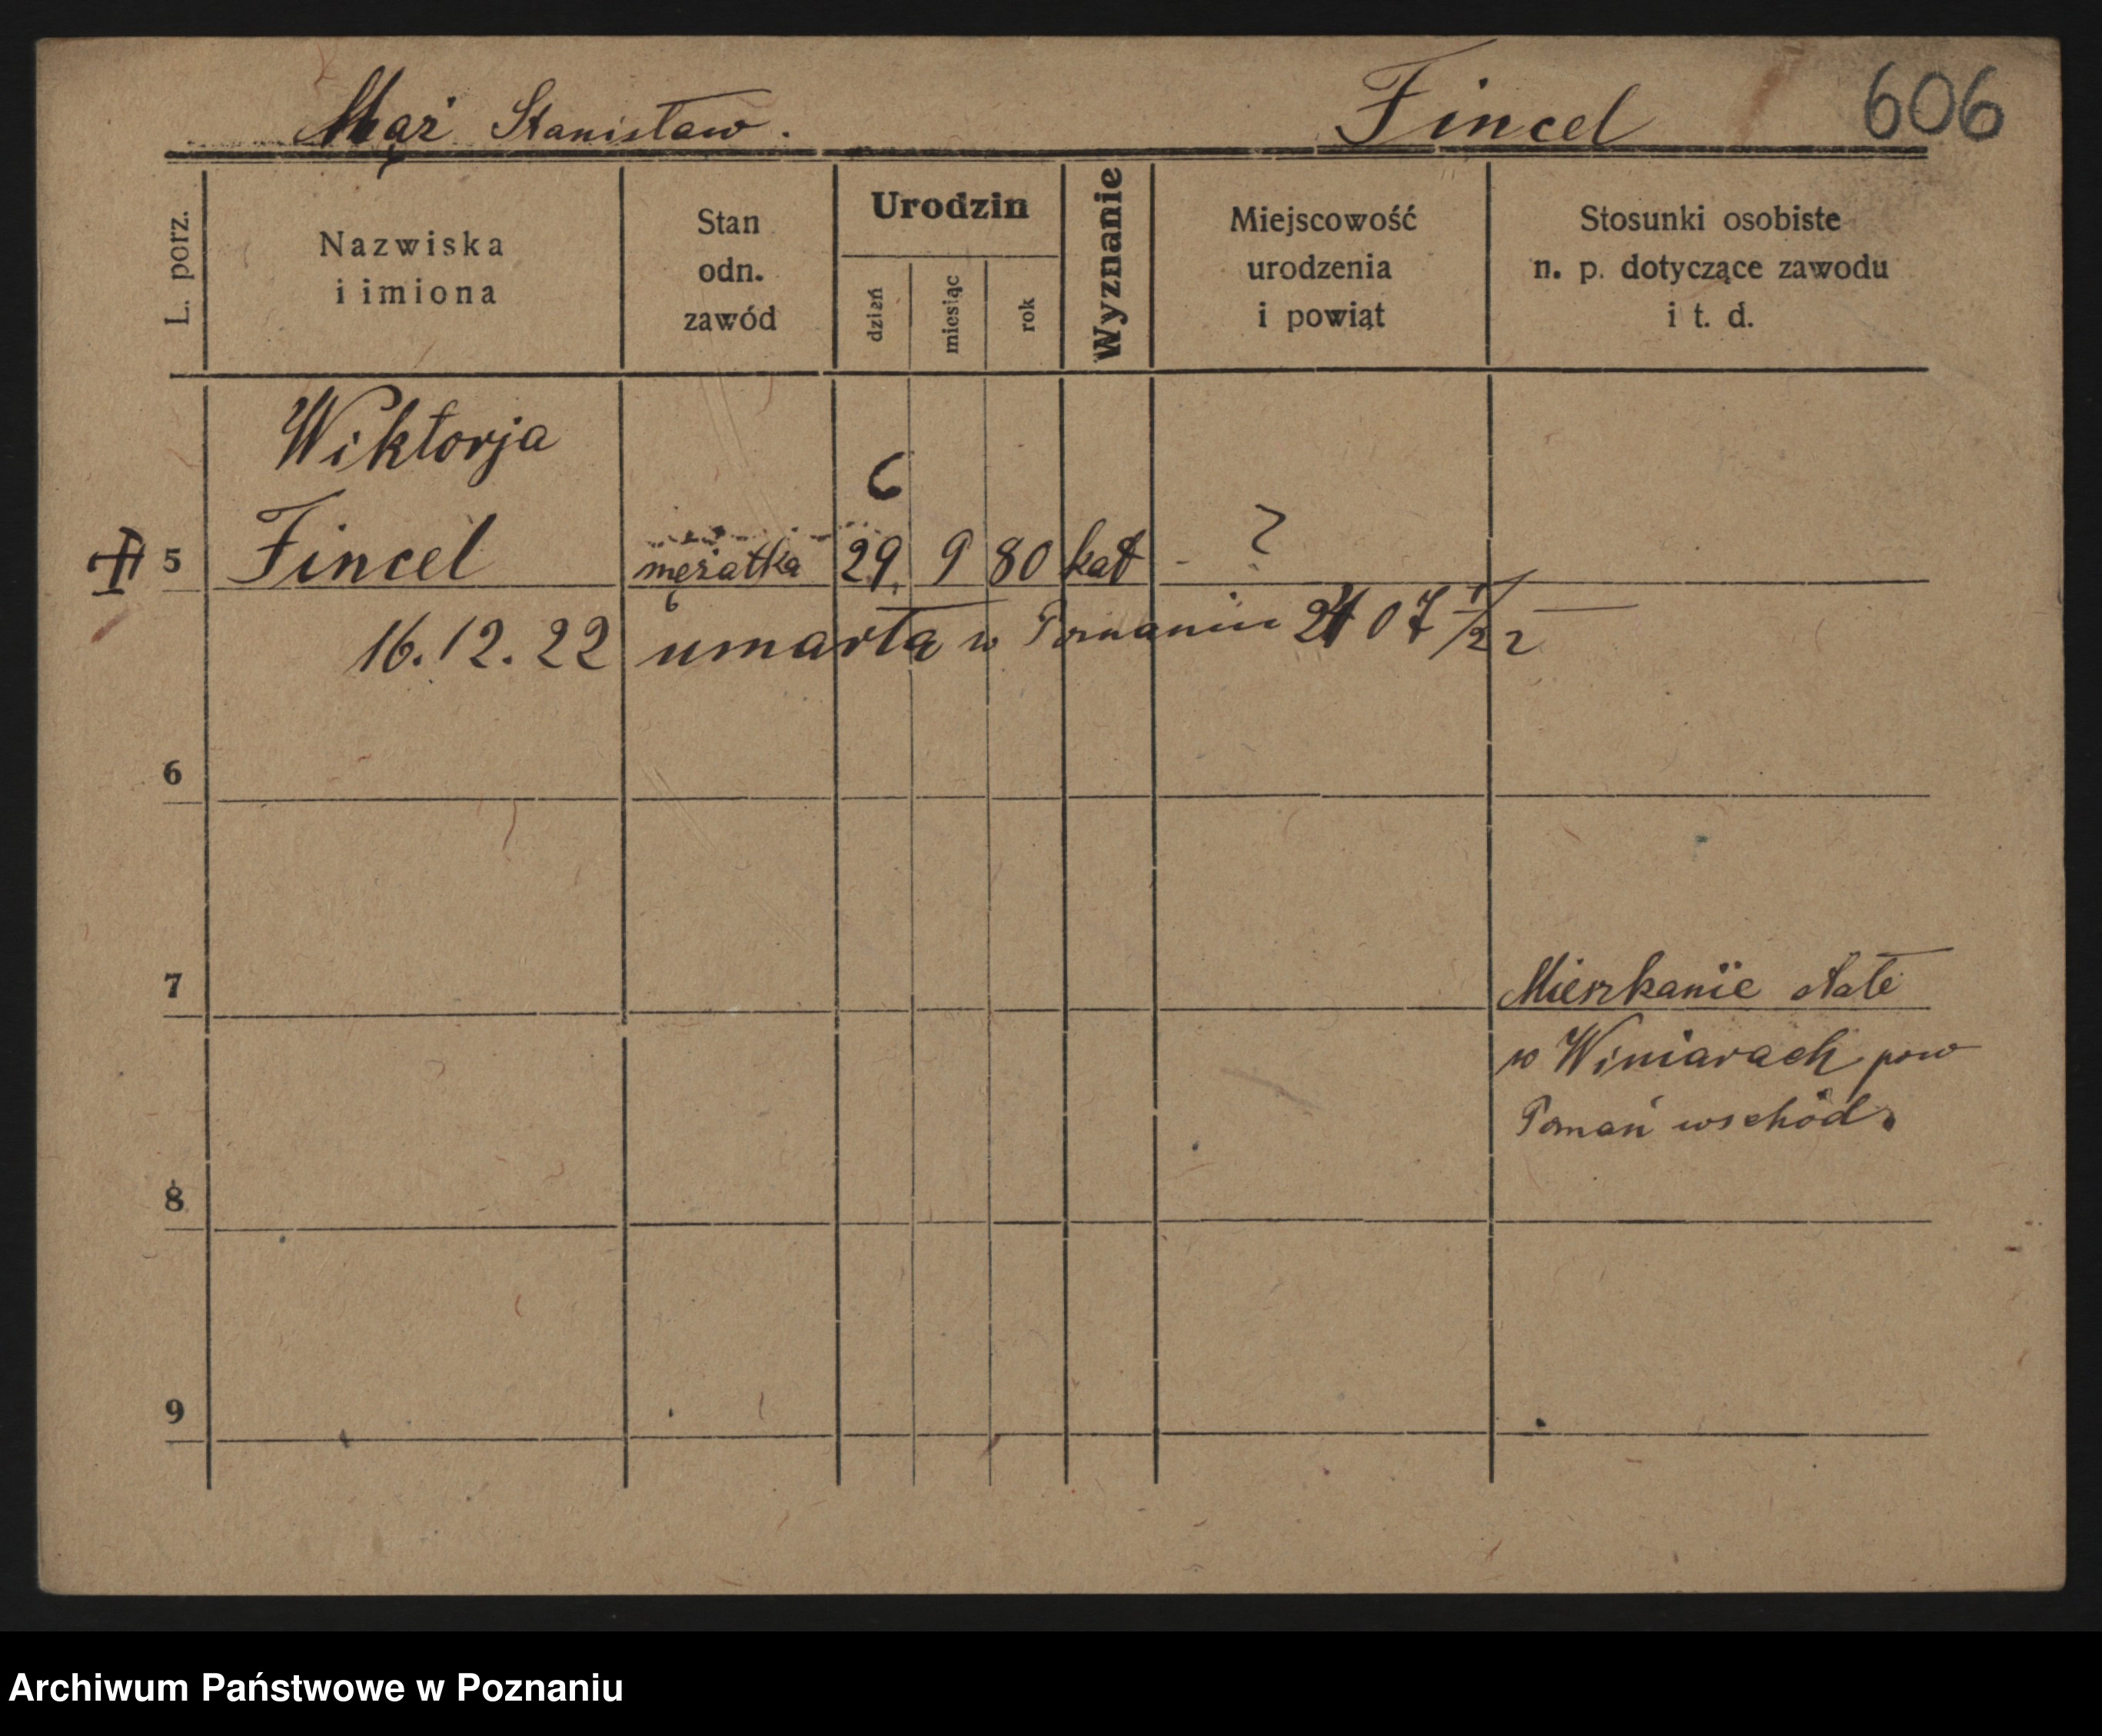 Mąż Stanisław. Fincel 606
L. porz.
Nazwiska
i imiona
Stan
odn.
zawód
Urodzin
dzień
miesiąc
rok
Wyznanie
Miejscowość
urodzenia
i powiąt
Stosunki osobiste
n. p. dotyczące zawodu
i t. d.
Wiktorja
6
5 Fincel mężatka 29. 9 80 kat - ?
16.12.22 umarła w Poznaniu
6
7
Mieszkanie stałe
w Winiarach pow
Poznań wschód.
8
9
Archiwum Państwowe w Poznaniu